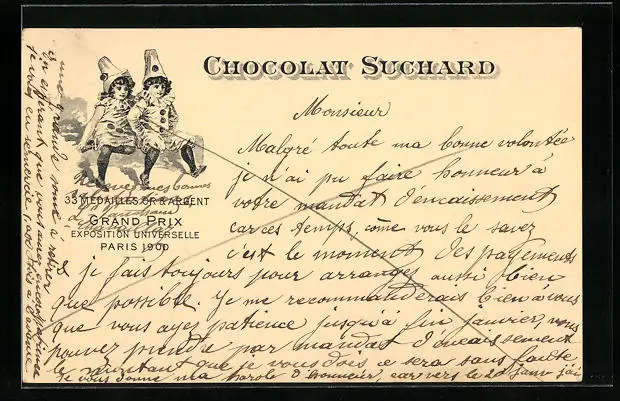 CHOCOLAT SUCHARD
33 MEDAILLES OR & ARGENT
GRAND PRIX
EXPOSITION UNIVERSELLE
PARIS 1900
Monsieur
Malgré toute ma bonne volontée
je n'ai pu faire honneur à
votre mandat d'encaissement
car ces temps, come vous le savez
c'est le moment des payements
je fais toujours pour arranger aussi bien
que possible. Je me recommanderais bien à vous
que vous ayes patience jusqu'à fin janvier, vous
pouvez prendre par mandat d'encaissement
le montant que je vous dois ce sera sans faute
je vous donne ma parole d'honneur, car vers le 20 janv j'ai
une grande somme à
En espérant que vous
Je vous en remercie
Recevez mes bonnes